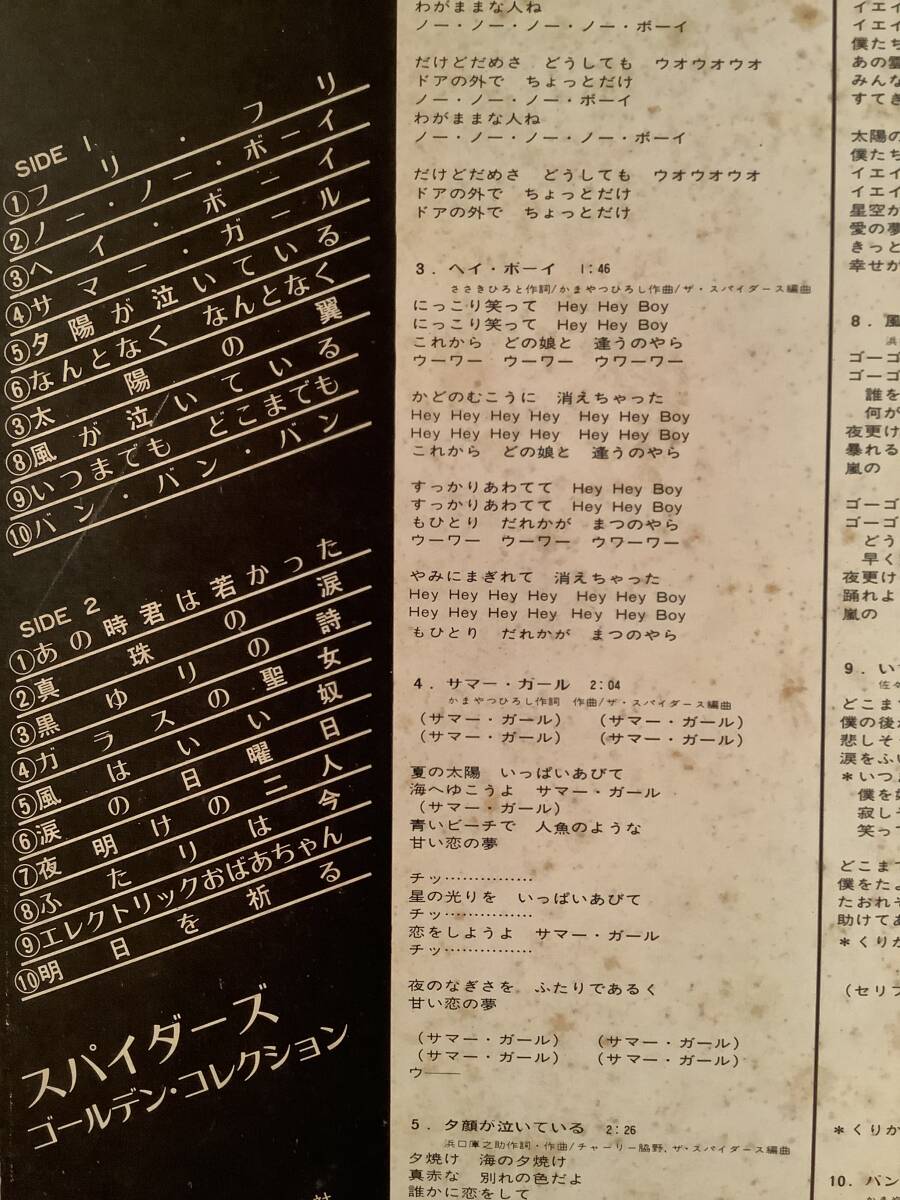 SIDE 1
①フリ・フリ
②ノー・ノー・ボーイ
③ヘイ・ボーイ
④サマー・ガール
⑤夕陽が泣いている
⑥なんとなく なんとなく
③太陽の翼
⑧風が泣いている
⑨いつまでも どこまでも
⑩バン・バン・バン
SIDE 2
①あの時君は若かった
②真珠の涙
③黒ゆりの詩
④ガラスの聖女
⑤風はいい奴
⑥涙の日曜日
⑦夜明けの二人
⑧ふたりは今
⑨エレクトリックおばあちゃん
⑩明日を祈る
スパイダーズ
ゴールデン・コレクション
わがままな人ね
ノー・ノー・ノー・ノー・ボーイ
だけどだめさ どうしても ウオウオウオ
ドアの外で ちょっとだけ
ノー・ノー・ノー・ボーイ
わがままな人ね
ノー・ノー・ノー・ノー・ボーイ
だけどだめさ どうしても ウオウオウオ
ドアの外で ちょっとだけ
ドアの外で ちょっとだけ
3．ヘイ・ボーイ 1:46
ささきひろと作詞/かまやつひろし作曲/ザ・スパイダース編曲
にっこり笑って Hey Hey Boy
にっこり笑って Hey Hey Boy
これから どの娘と 逢うのやら
ウーワー ウーワー ウワーワー
かどのむこうに 消えちゃった
Hey Hey Hey Hey Hey Hey Boy
Hey Hey Hey Hey Hey Hey Boy
これから どの娘と 逢うのやら
すっかりあわてて Hey Hey Boy
すっかりあわてて Hey Hey Boy
もひとり だれかが まつのやら
ウーワー ウーワー ウワーワー
やみにまぎれて 消えちゃった
Hey Hey Hey Hey Hey Hey Boy
Hey Hey Hey Hey Hey Hey Boy
もひとり だれかが まつのやら
4．サマー・ガール 2:04
かまやつひろし作詞 作曲/ザ・スパイダース編曲
（サマー・ガール） （サマー・ガール）
（サマー・ガール） （サマー・ガール）
夏の太陽 いっぱいあびて
海へゆこうよ サマー・ガール
（サマー・ガール）
青いビーチで 人魚のような
甘い恋の夢
チッ……………
星の光りを いっぱいあびて
チッ……………
恋をしようよ サマー・ガール
チッ……………
夜のなぎさを ふたりであるく
甘い恋の夢
（サマー・ガール） （サマー・ガール）
（サマー・ガール） （サマー・ガール）
ウ——
5．夕顔が泣いている 2:26
浜口庫之助作詞・作曲/チャーリー脇野，ザ・スパイダース編曲
夕焼け 海の夕焼け
真赤な 別れの色だよ
誰かに恋をして
イエイ
イエイ
僕たち
あの雲
みんな
すてき
太陽の
僕たち
イエイ
イエイ
星空か
愛の夢
きっと
幸せか
8．風
浜
ゴーゴ
ゴーゴ
誰を
何が
夜更け
暴れる
嵐の
ゴーゴ
ゴーゴ
どう
早く
夜更け
踊れよ
嵐の
9．い
佐々
どこま
僕の後
悲しそ
涙をふ
＊いつ
僕を
寂し
笑って
どこま
僕をたよ
たおれそ
助けてあ
＊くりか
（セリフ
＊くりか
10．バン
かま